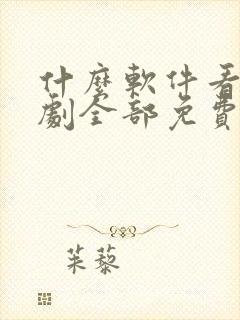 什麼軟件看
劇全部免費
茱藜